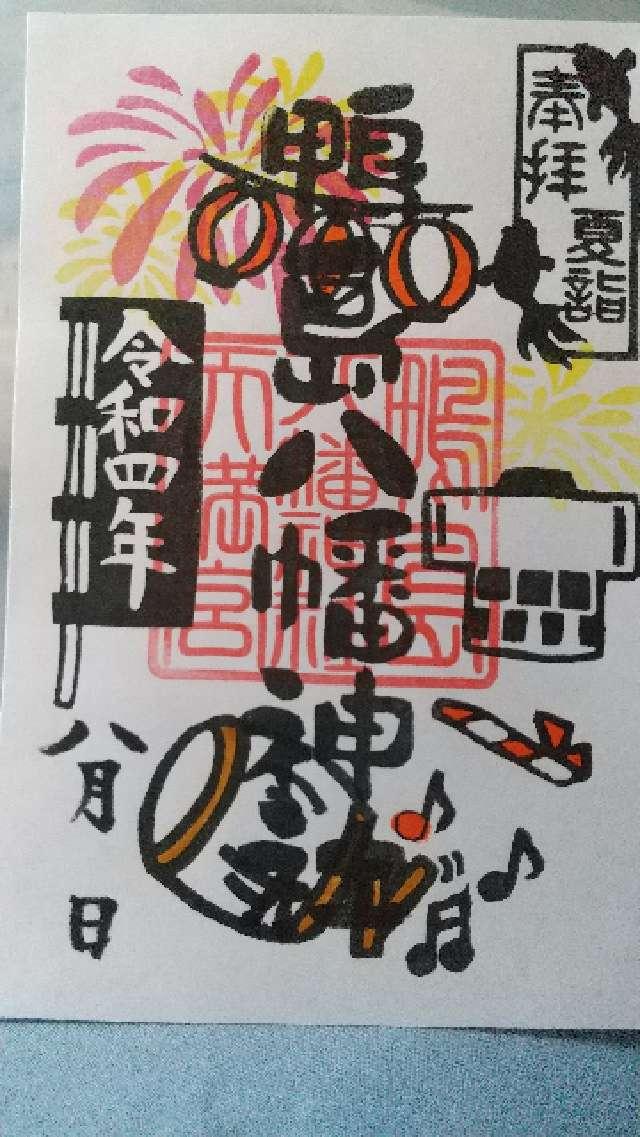 奉拝
夏詣
鴨島八幡神社
鴨島
八幡神社
天満宮
令和四年
八月 日